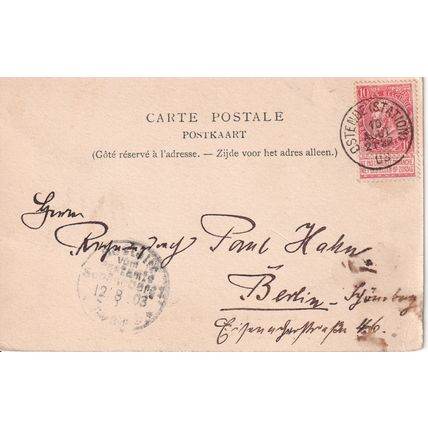 CARTE POSTALE
POSTKAART
(Côté réservé à l'adresse. — Zijde voor het adres alleen.)
10
OSTENDE (STATION)
10
AOUT
03
Herrn
Paul Hahn
Berlin - Schöneberg
Eisenacherstraße 46.
Bestellt
vom
Postamte
12/8 03